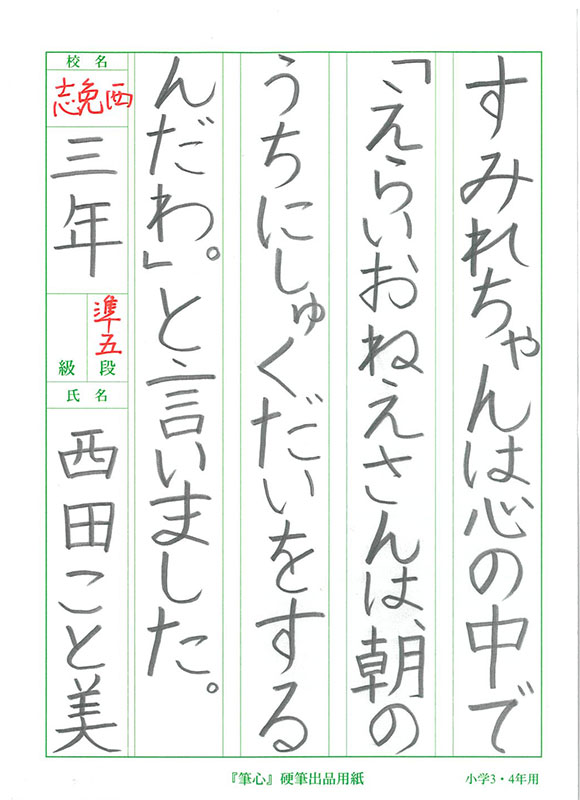 すみれちゃんは心の中で
「えらいおねえさんは、朝の
うちにしゅくだいをする
んだわ。」と言いました。
校名
志免西
三年
準五
段
級
氏名
西田こと美
『筆心』硬筆出品用紙
小学3・4年用